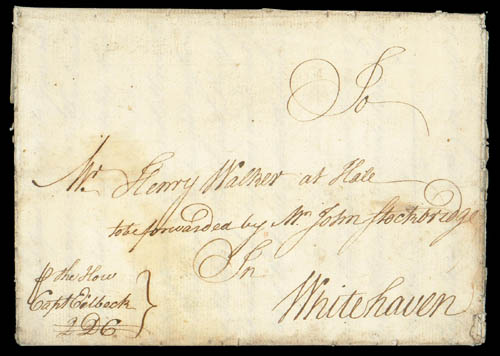 To
Mr. Henry Walker at Hale
to be forwarded by Mr. John Stockbridge
In
Whitehaven
the How
Capt Eilbeck
2DC